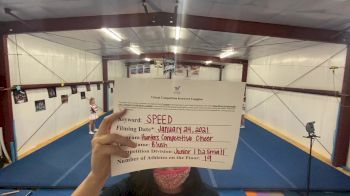 Virtual Competition Keyword Template
Keyword: SPEED
Filming Date: January 24, 2021
Program Name: Hunters Competitive Cheer
Team Name: Blush
Competition Division: Junior 1 D2 Small
Number of Athletes on the Floor: 19